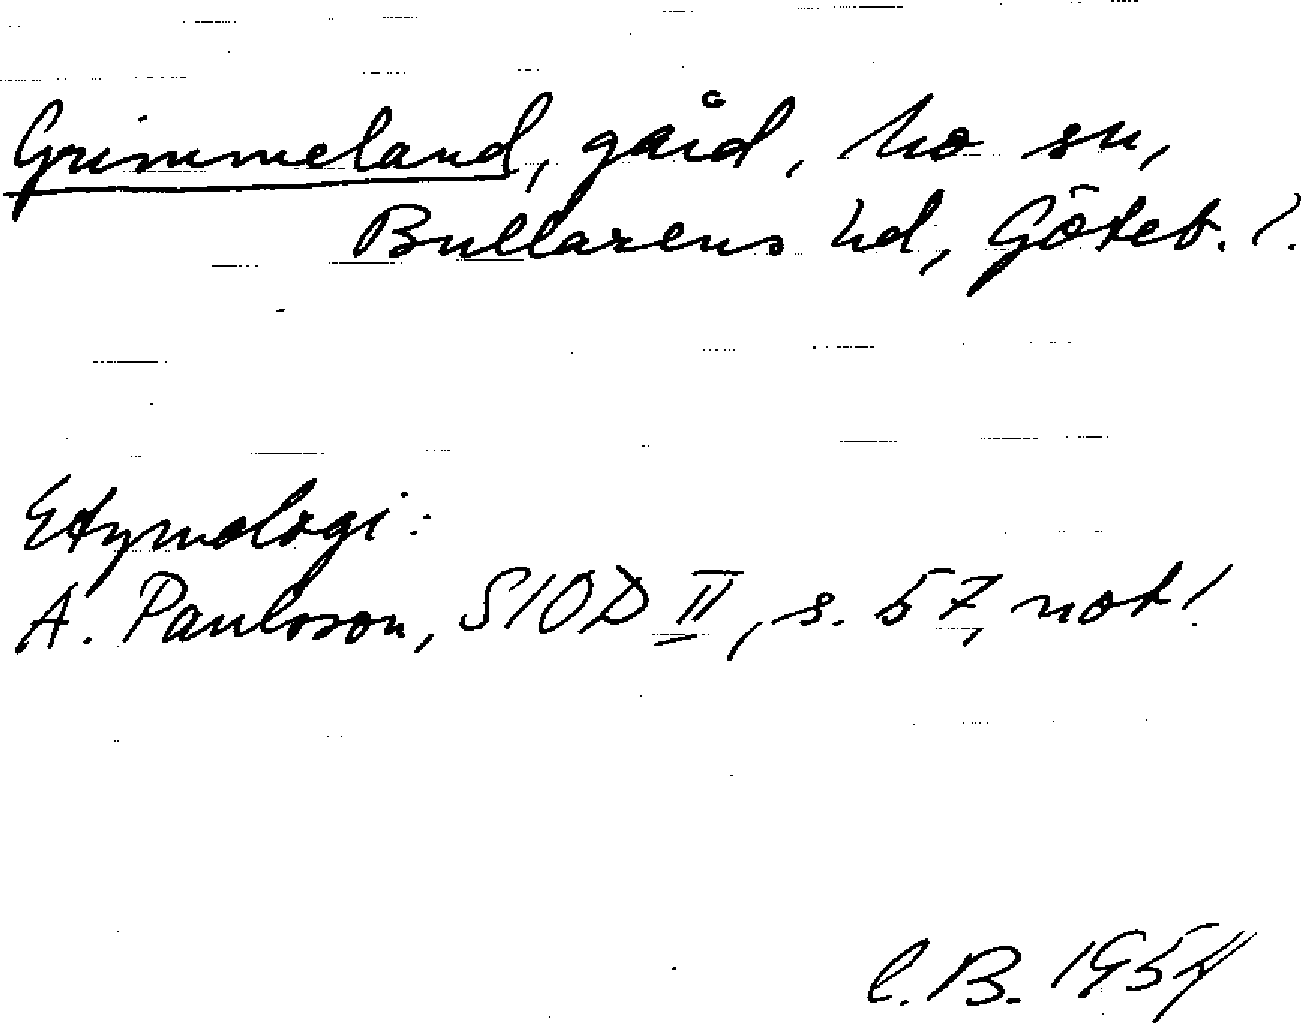 Grimmeland, gård, Mo sn,
Bullarens hd, Göteb. l.
Etymologi:
A. Paulsson, SIOD II, s. 57, not!
C. B. 1954